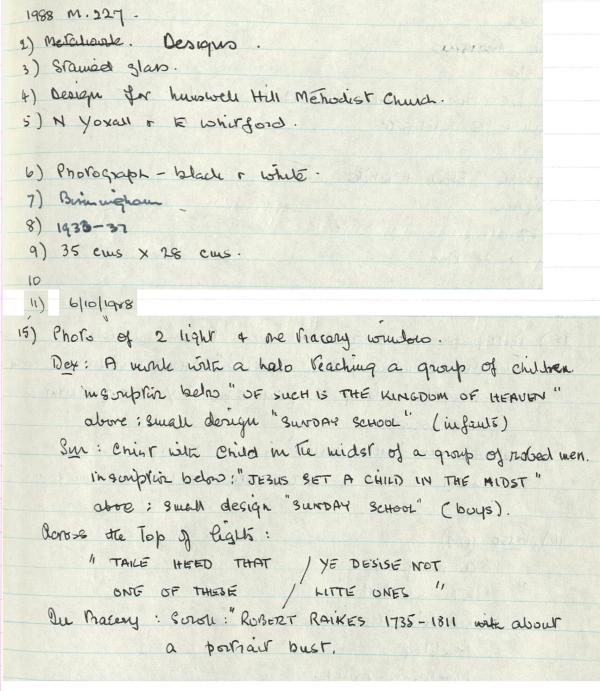 1988 M.227.
2) Metalwork. Designs.
3) Stained glass.
4) Design for Hunswell Hill Methodist Church.
5) N Yoxall & E Whitford.
6) Photograph - black & white.
7) Birmingham
8) 1933-37
9) 35 cms x 28 cms.
10
11) 6/10/1988
15) Photo of 2 light & one tracery window.
Dex: A monk with a halo teaching a group of children
inscription below "OF SUCH IS THE KINGDOM OF HEAVEN"
above: small design "SUNDAY SCHOOL" (infants)
Sin: Christ with child in the midst of a group of robed men.
inscription below: "JESUS SET A CHILD IN THE MIDST"
above: small design "SUNDAY SCHOOL" (boys).
Across the top of lights:
" TAKE HEED THAT / YE DESISE NOT
ONE OF THESE / LITTE ONES "
In tracery: Scroll: "ROBERT RAIKES 1735-1811 with about
a portrait bust.